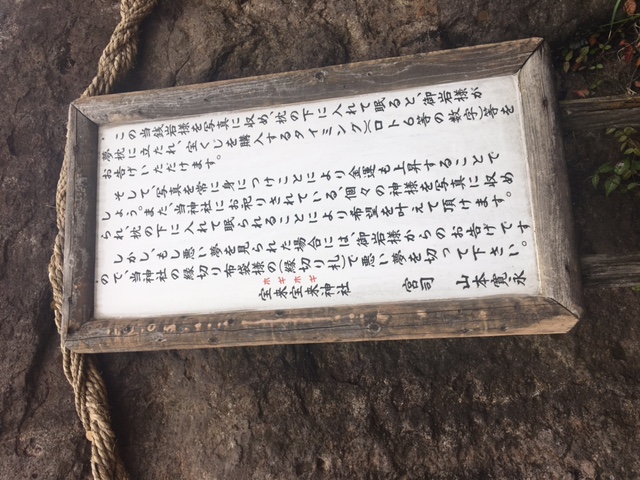 ・この当銭岩様を写真に収め、枕の下に入れて眠ると、御岩様が
夢枕に立たれ、宝くじを購入するタイミング(ロト6等の数字)等を
お告げいただけます。
・そして、写真を常に身につけことにより金運も上昇することで
しょう。また、当神社にお祀りされている、個々の神様を写真に収め
られ、枕の下に入れて眠られることにより希望を叶えて頂けます。
・しかし、もし悪い夢を見られた場合には、御岩様からのお告げです
ので、当神社の縁切り布袋様の(縁切り札)で悪い夢を切って下さい。
ホギホギ
宝来宝来神社
宮司 山本寛永